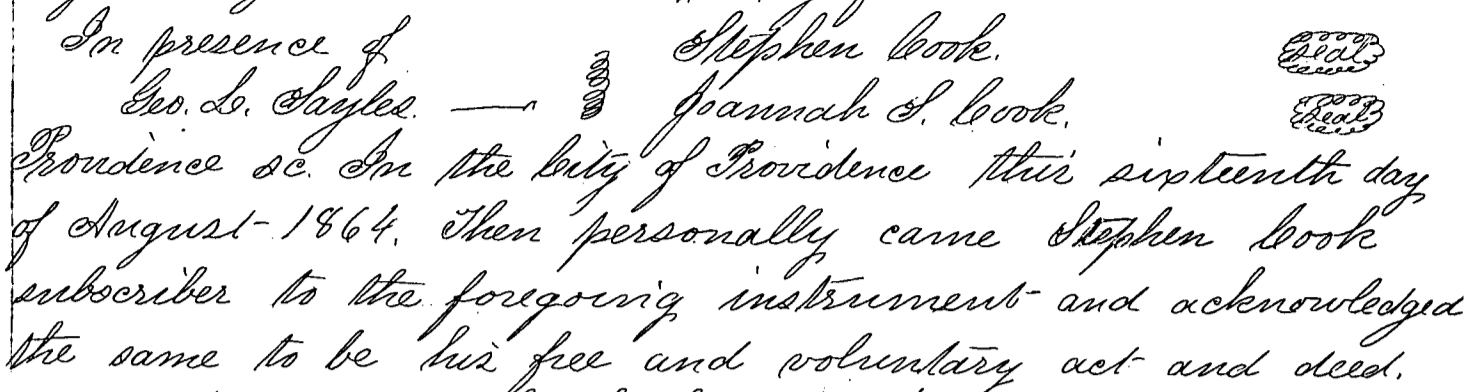 In presence of Stephen Cook. Seal
Geo. L. Sayles. — Joannah S. Cook. Seal
Providence sc. In the City of Providence this sixteenth day
of August 1864. Then personally came Stephen Cook
subscriber to the foregoing instrument and acknowledged
the same to be his free and voluntary act and deed.